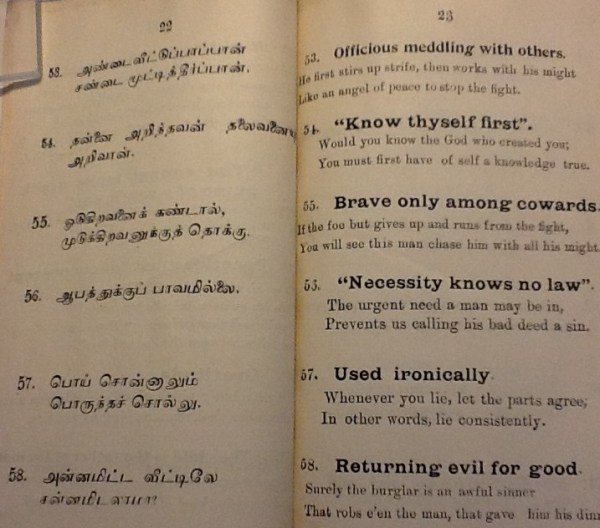 22
53. அண்டைவீட்டுப்பாப்பான்
சண்டை முட்டித்தீர்ப்பான்.
54. தன்னை அறிந்தவன் தலைவனை
அறிவான்.
55. ஓடுகிறவனைக் கண்டால்,
முடுக்கிறவனுக்குத் தொக்கு.
56. ஆபத்துக்குப் பாவமில்லை.
57. பொய் சொன்னாலும்
பொருந்தச் சொல்லு.
58. அன்னமிட்ட வீட்டிலே
கன்னமிடலாமா?
23
53. Officious meddling with others.
He first stirs up strife, then works with his might
Like an angel of peace to stop the fight.
54. “Know thyself first”.
Would you know the God who created you;
You must first have of self a knowledge true.
55. Brave only among cowards.
If the foe but gives up and runs from the fight,
You will see this man chase him with all his might.
56. “Necessity knows no law”.
The urgent need a man may be in,
Prevents us calling his bad deed a sin.
57. Used ironically.
Whenever you lie, let the parts agree;
In other words, lie consistently.
58. Returning evil for good.
Surely the burglar is an awful sinner
That robs e'en the man, that gave him his